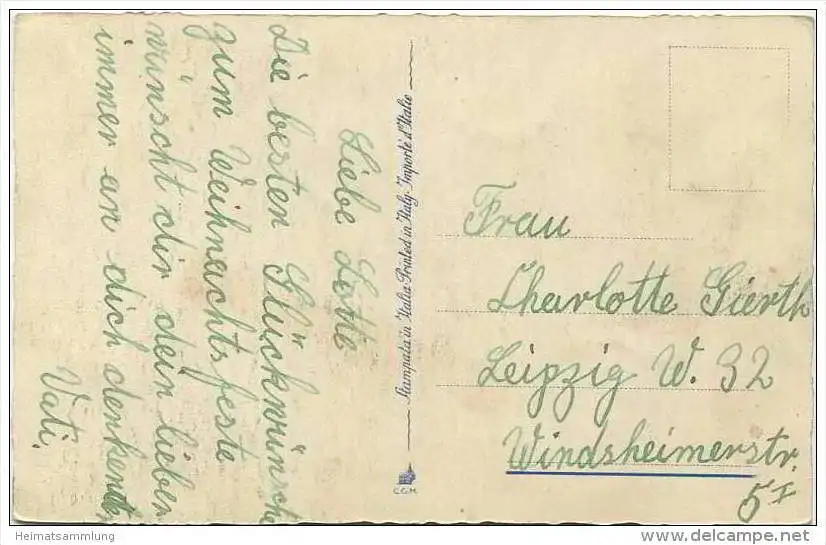 Liebe Lotte
Die besten Glückwünsche
zum Weihnachtsfeste
wünscht dir dein lieber
immer an dich denkender
Vati.
Stampata in Italia-Printed in Italy-Importé d'Italie
C.G.M.
Frau
Charlotte Gierth
Leipzig W. 32
Windsheimerstr.
5 I
Heimatsammlung
www.delcampe.net